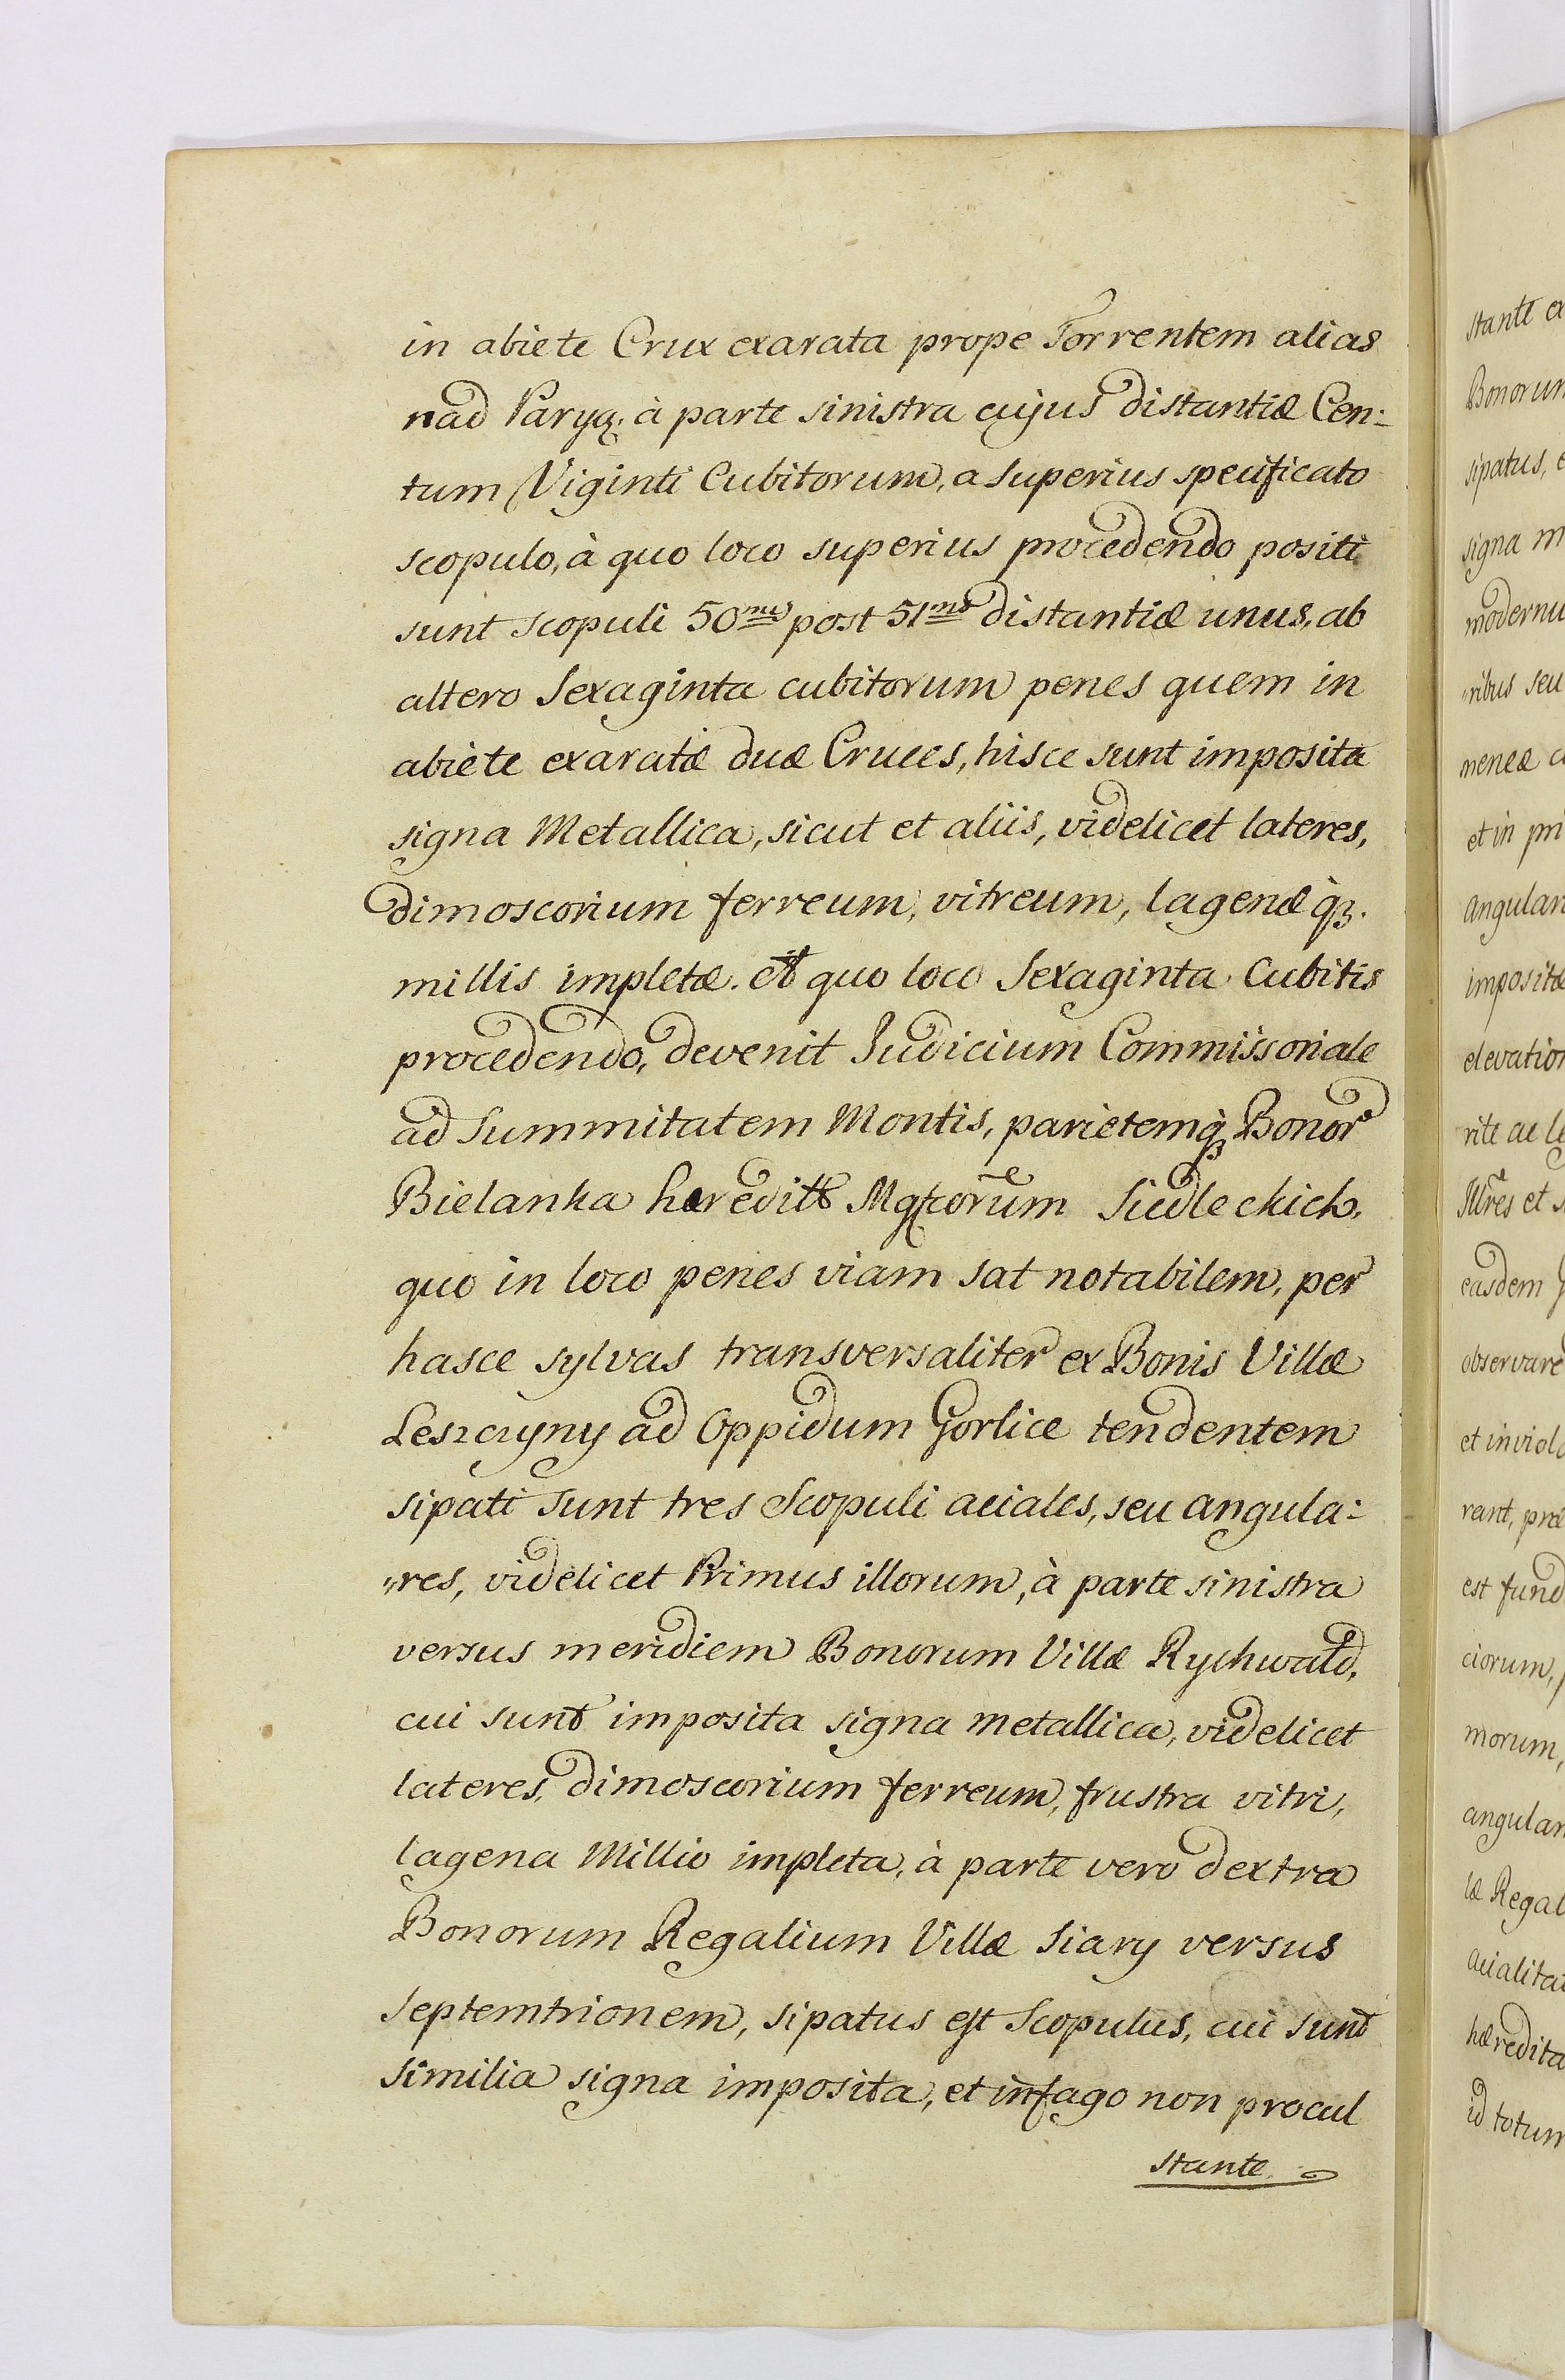 in abiete Crux exarata prope Torrentem alias
nad Paryą. à parte sinistra cujus distantiæ Cen:
tum Viginti Cubitorum, a superius specificato
scopulo, à quo loco superius procedendo positi
sunt scopuli 50mus post 51mus distantiæ unus, ab
altero Sexaginta cubitorum penes quem in
abiete exaratæ duæ Cruces, hisce sunt imposita
signa Metallica, sicut et aliis, videlicet lateres,
dimoscorium ferreum, vitreum, lagenæ qꝫ.
millis impletæ. et quo loco Sexaginta Cubitis
procedendo, devenit Judicium Commissoriale
ad Summitatem Montis, parietemqꝫ Bonor
Bielanka hæredit Mgfcorum Siedleckich,
quo in loco penes viam sat notabilem, per
hasce sylvas transversaliter ex Bonis Villæ
Leszczyny ad Oppidum Gorlice tendentem
sipati sunt tres Scopuli aciales, seu angula:
„res, videlicet Primus illorum, à parte sinistra
versus meridiem Bonorum Villæ Rychwald,
cui sunt imposita signa metallica, videlicet
lateres, dimoscorium ferreum, frustra vitri,
lagena Millio impleta, à parte vero dextra
Bonorum Regalium Villæ Siary versus
Septemtrionem, sipatus est Scopulus, cui sunt
similia signa imposita, et in fago non procul
stante
stante ex
Bonorum
sipatus, e
signa m
modernu
„ribus seu
meneæ c
et in pri
angular
impositæ
elevation
rite ac le
Illres et s
easdem
observare
et inviola
rant, præ
est fund
ciorum,
morum,
angular
læ Regal
acialita
hæredita
id totum